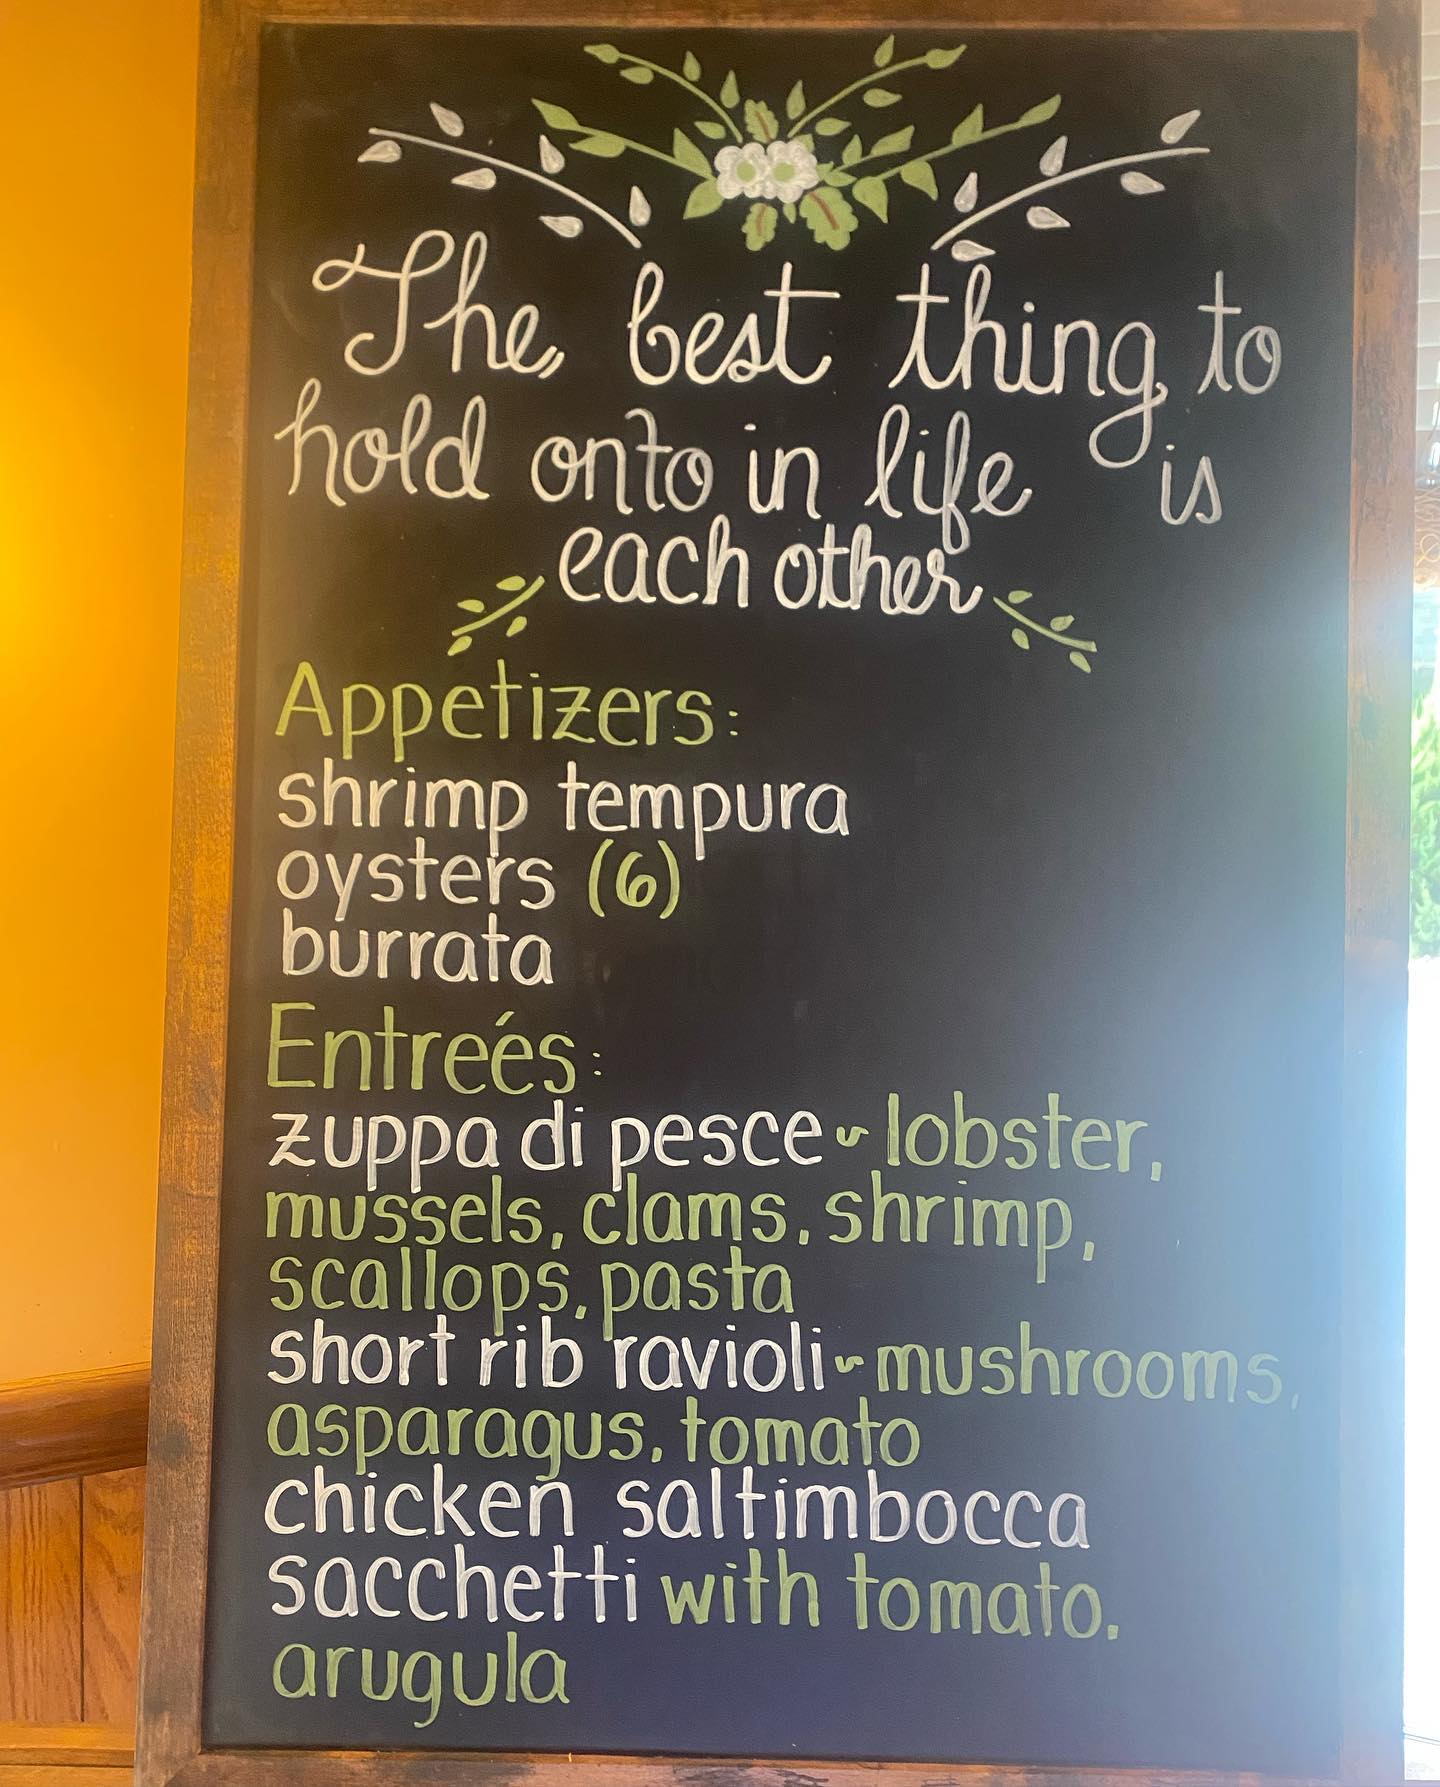 The best thing to
hold onto in life is
each other
Appetizers:
shrimp tempura
oysters (6)
burrata
Entreés:
zuppa di pesce ~ lobster,
mussels, clams, shrimp,
scallops, pasta
short rib ravioli ~ mushrooms,
asparagus, tomato
chicken saltimbocca
sacchetti with tomato,
arugula